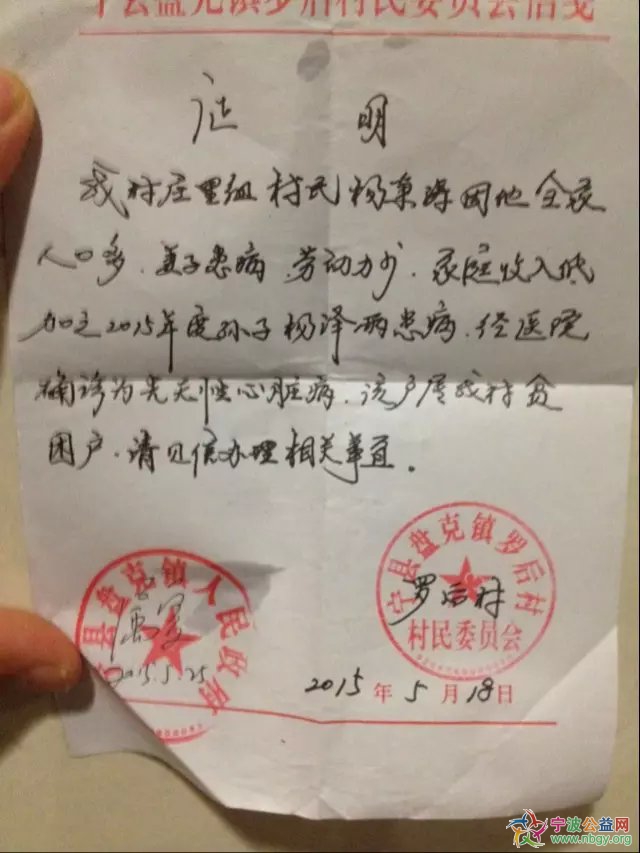 宁县盘克镇罗后村民委员会信笺
证 明
我村庄里组村民杨秉 因他全家
人口多、妻子患病、劳动力少、家庭收入低
加之2015年度孙子杨泽雨患病、经医院
确诊为先天性心脏病、该户属我村贫
困户、请见信办理相关事宜。
宁县盘克镇人民政府
2015.5.25
宁县盘克镇罗后村
村民委员会
罗后村
2015年5月18日
宁波公益网
www.nbgy.org